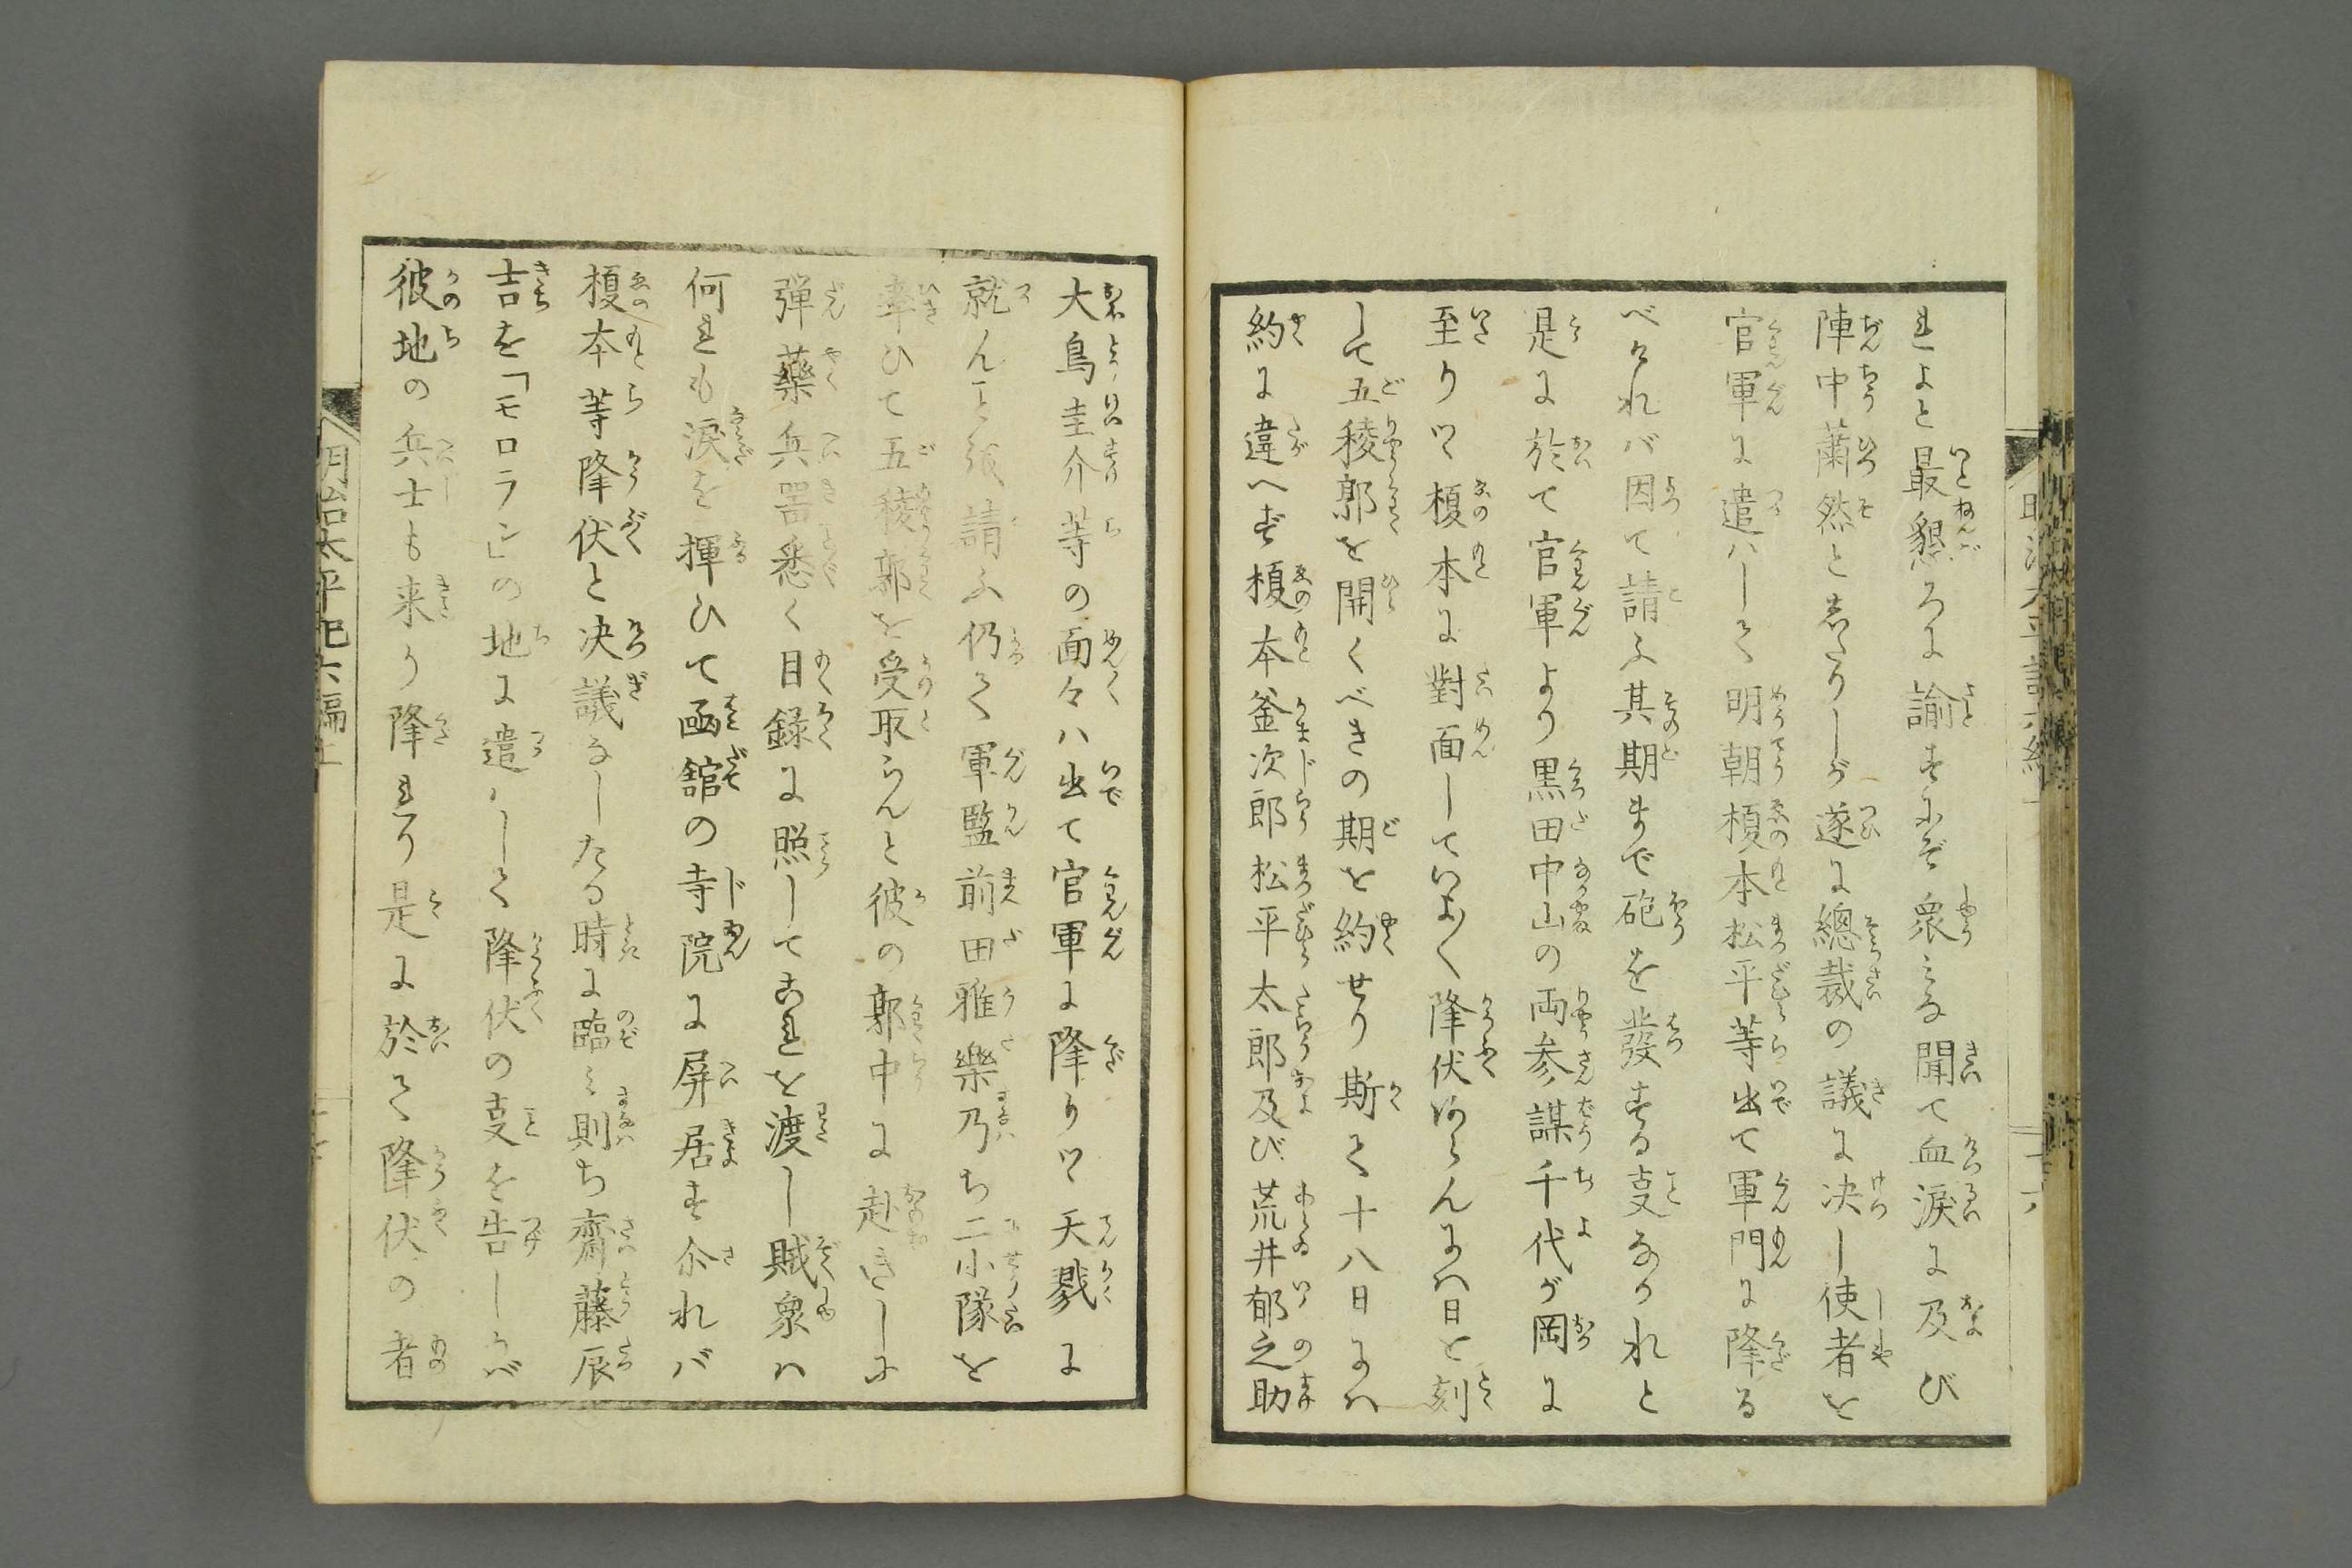 れよと最懇ろに諭すにぞ衆みな聞て血涙に及び
陣中蕭然と志たりしが遂に總裁の議に决し使者を
官軍に遣ハして明朝榎本松平等出て軍門に降る
べけれバ因て請ふ其期まで砲を發する叓なかれと
是に於て官軍より黒田中山の両参謀千代が岡に
至りて榎本に對面していよ〱降伏あらんにハ日と刻
して五稜郭を開くべきの期を約せり斯て十八日にハ
約に違へず榎本釜次郎松平太郎及び荒井郁之助
大鳥圭介等の面々ハ出て官軍に降りて天戮に
就んこと強請ふ仍て軍監前田雅樂乃ち二小隊を
率ひて五稜郭を受取らんと彼の郭中に赴きしに
弾藥兵器悉く目録に照してこれを渡し賊衆ハ
何れも涙を揮ひて函舘の寺院に屏居す尒れバ
榎本等降伏と决議なしたる時に臨み則ち齋藤辰
吉を「モロラン」の地に遣ハして降伏の叓を告しかバ
彼地の兵士も来り降れり是に於て降伏の者
明治太平記六編上